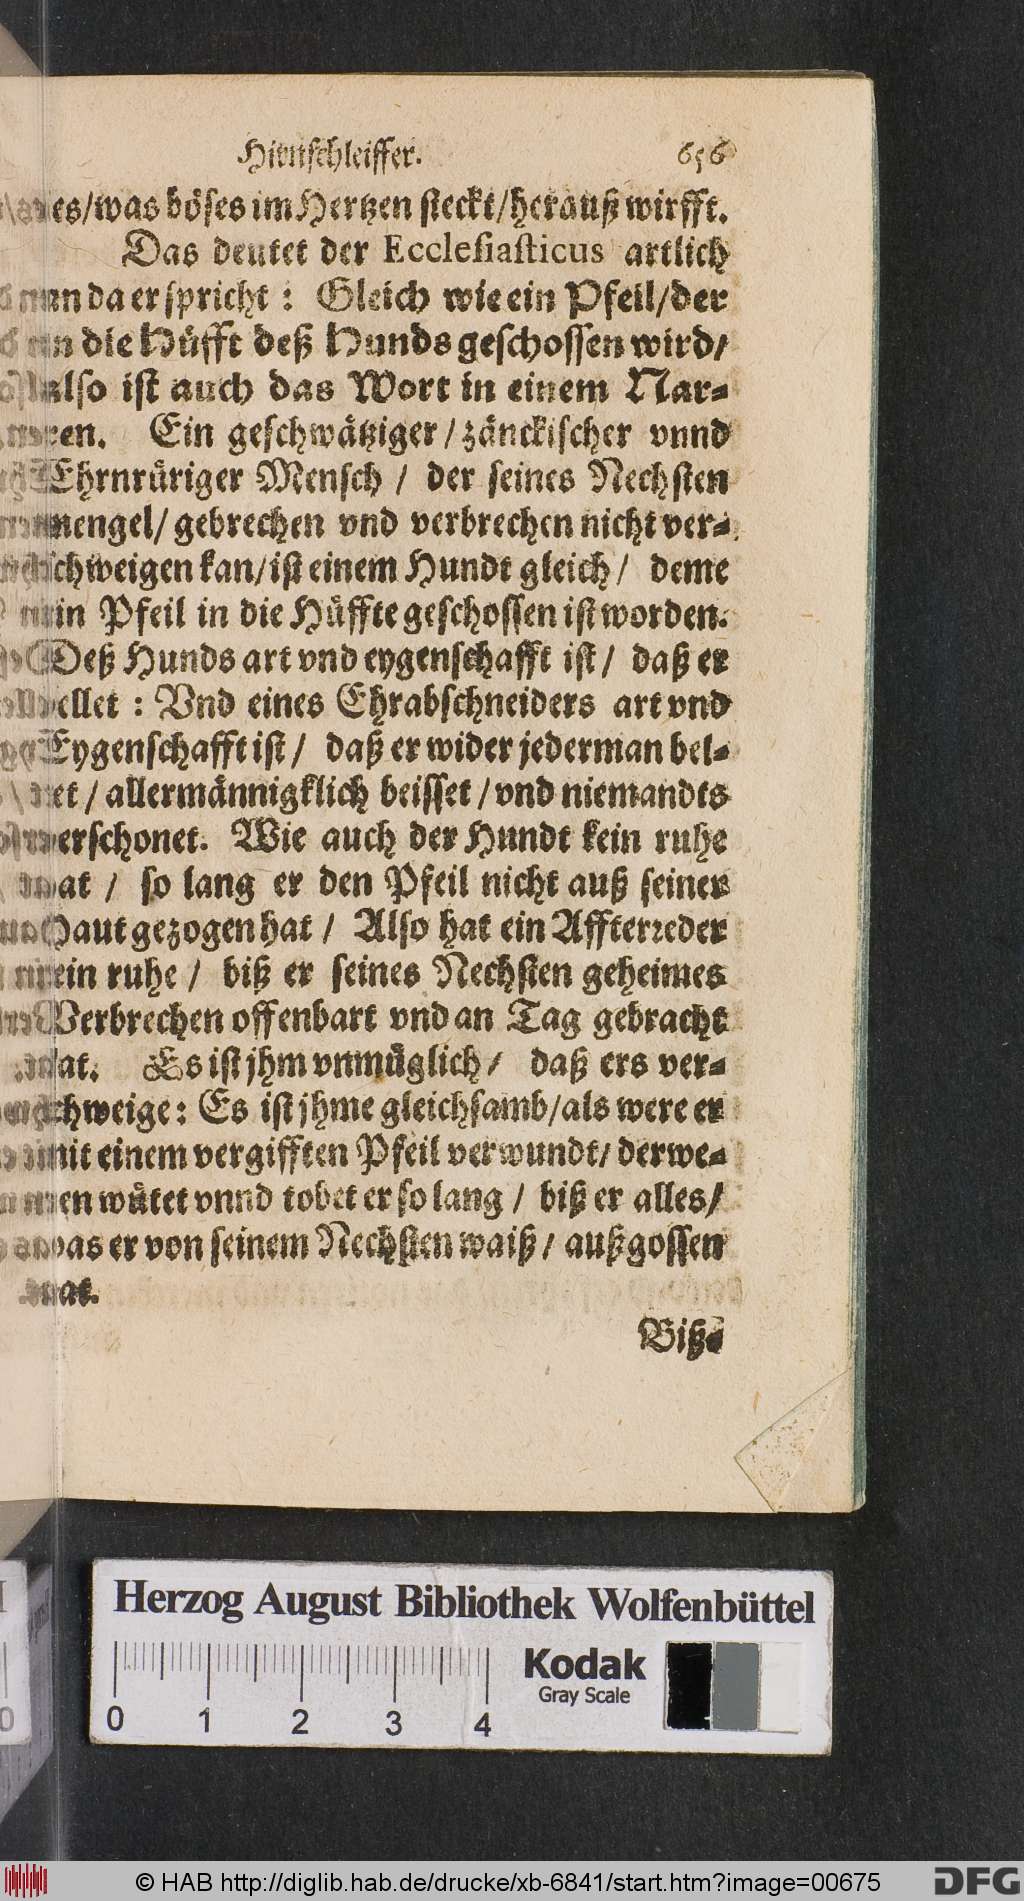 Hirnschleiffer. 656
es/was böses im Hertzen steckt/herauß wirfft.
Das deutet der Ecclesiasticus artlich
an da er spricht: Gleich wie ein Pfeil/der
in die Hüfft deß Hunds geschossen wird/
also ist auch das Wort in einem Nar-
ren. Ein geschwätziger/zänckischer vnnd
Ehrnrüriger Mensch / der seines Nechsten
mengel/ gebrechen vnd verbrechen nicht ver-
schweigen kan/ist einem Hundt gleich/ deme
ein Pfeil in die Hüffte geschossen ist worden.
Deß Hunds art vnd eygenschafft ist/ daß er
bellet: Vnd eines Ehrabschneiders art vnd
Eygenschafft ist/ daß er wider jederman bel-
let/ allermännigklich beisset/vnd niemandts
verschonet. Wie auch der Hundt kein ruhe
hat / so lang er den Pfeil nicht auß seiner
Haut gezogen hat / Also hat ein Affterreder
kein ruhe/ biß er seines Nechsten geheimes
Verbrechen offenbart vnd an Tag gebracht
hat. Es ist jhm vnmüglich/ daß ers ver-
schweige: Es ist jhme gleichsamb/als were er
mit einem vergifften Pfeil verwundt/ derwe-
gen wütet vnnd tobet er so lang / biß er alles/
was er von seinem Nechsten waiß/ außgossen
hat.
Biß-
Herzog August Bibliothek Wolfenbüttel
Kodak
Gray Scale
0 1 2 3 4
© HAB http://diglib.hab.de/drucke/xb-6841/start.htm?image=00675
DFG